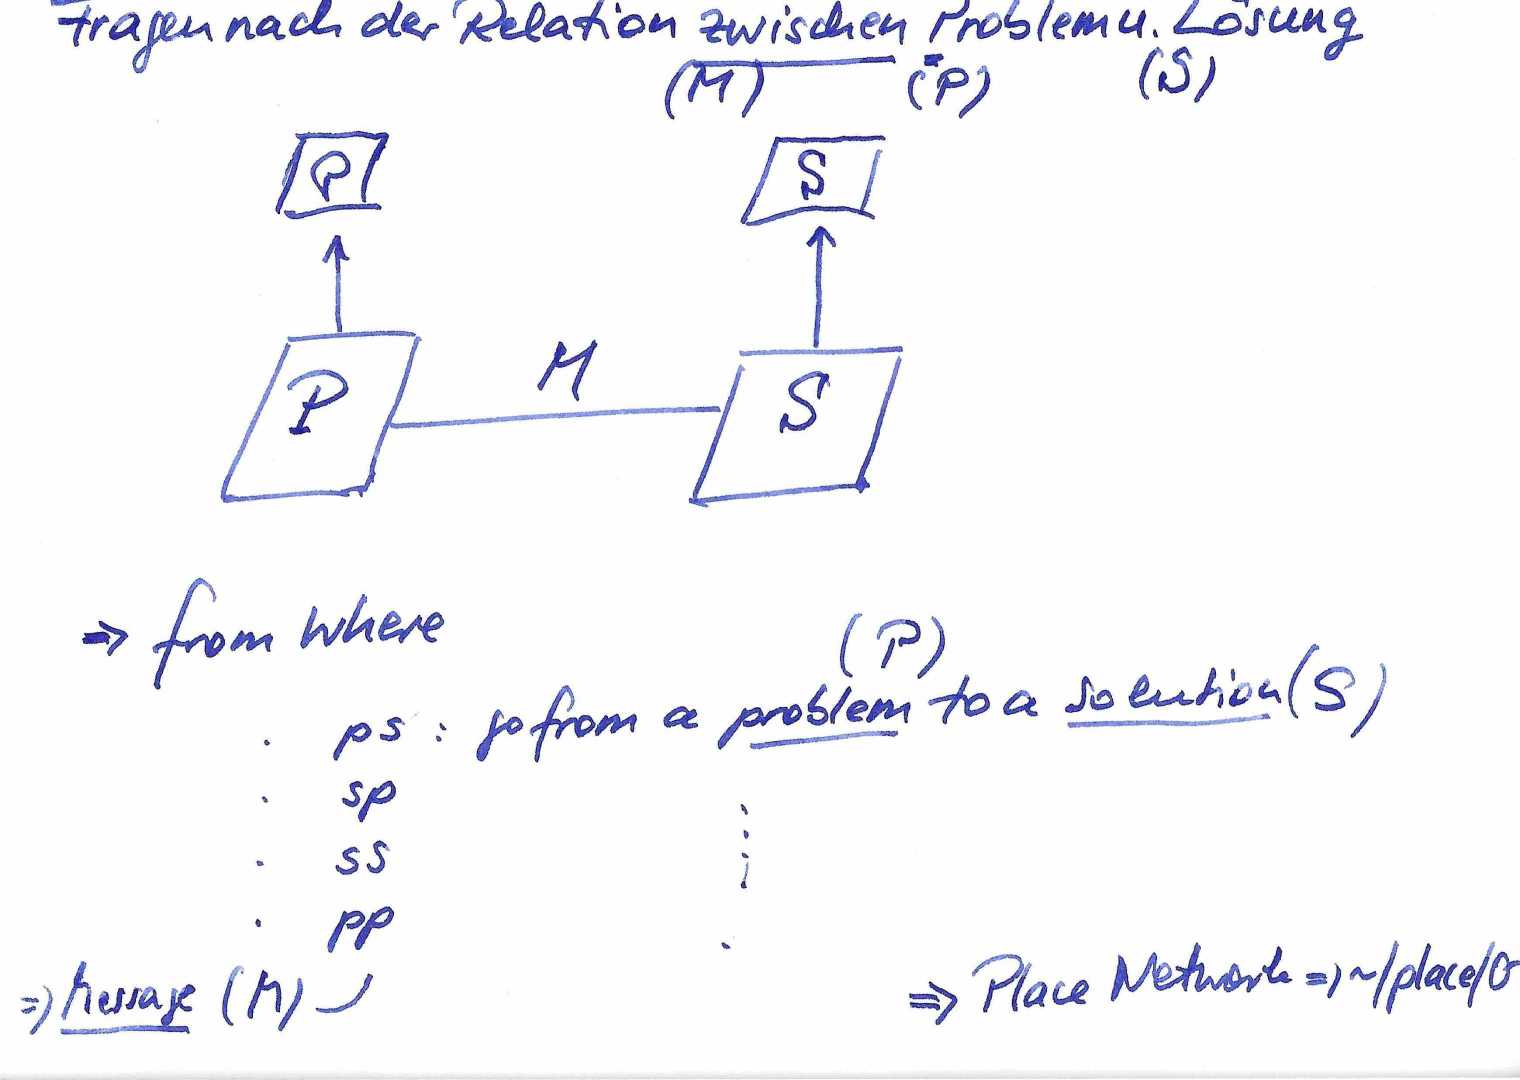 Fragen nach der Relation zwischen Problem u. Lösung
(M) (P) (S)
P S
M
P S
⇒ from where
(P)
. ps : go from a problem to a solution (S)
. sp
. ss
. pp
⇒ Message (M)
⇒ Place Network ⇒ ~/place/0